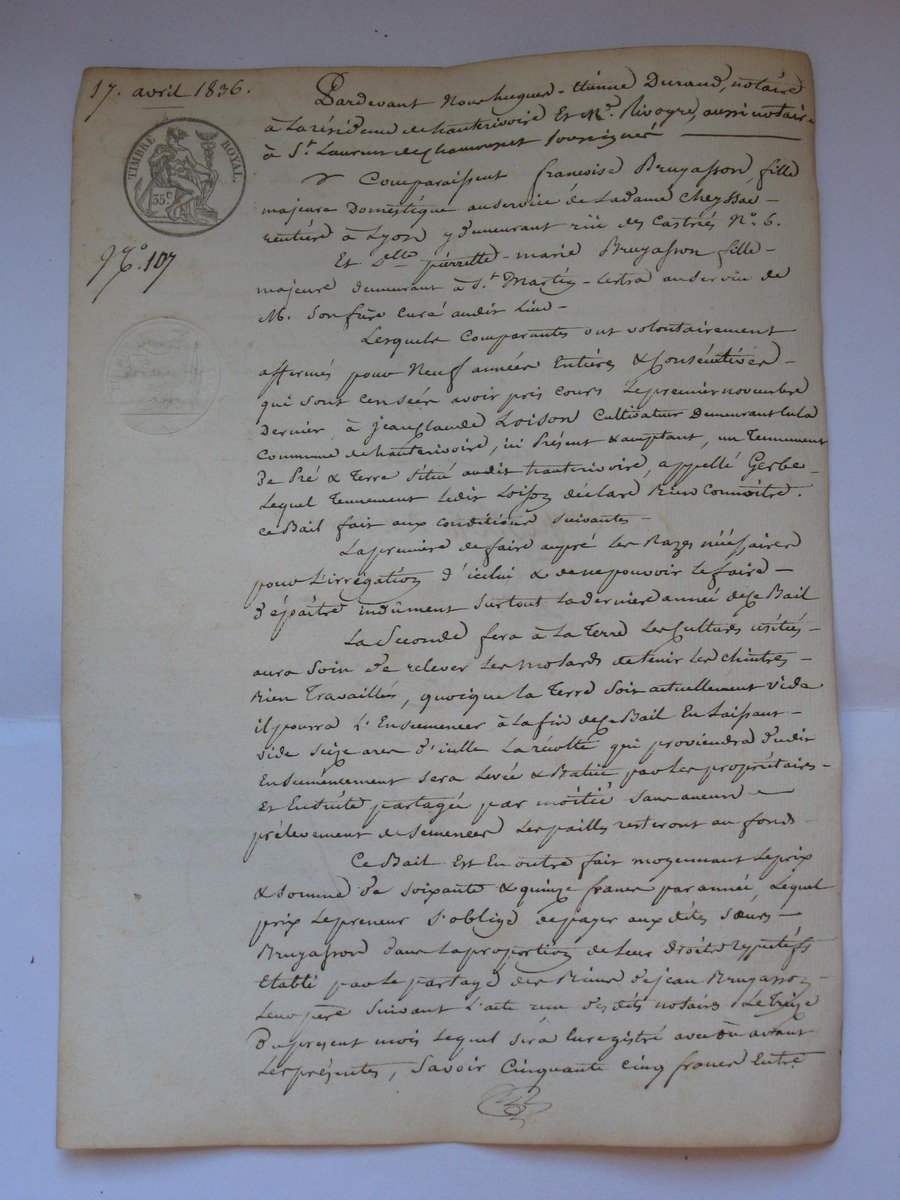 17. avril 1836.
TIMBRE ROYAL.
35c
No. 107
Pardevant Nous hugues-Etienne Durand, notaire
à la résidence de hauterivoire Et Me. Rivoyre, aussi notaire
à St. Laurent de Chamousset Soussignés
Comparaissent françoise Bruyasson, fille
majeure Domestique au service de La dame Cheyssac
rentière à Lyon y demeurant rüe des Castriés No. 6.
Et Delle pierrette-marie Bruyasson fille
majeure demeurant à St. Martin-lestra au service de
M. Son frère Curé audit Lieu-
Lesquels Comparantes ont volontairement
affermés pour Neuf années Entières & Consécutives-
qui sont censées avoir pris cours le premier novembre
dernier, à jean Claude Loison Cultivateur Demeurant en la
Commune de hauterivoire, ici Présent & acceptant, un Tennement
De Pré & Terre Situé audit hauterivoire, appellé Gerbe-
Lequel Tennement ledit Loison déclare Bien Connoitre.
Ce Bail fait aux conditions suivantes-
La première de faire au pré les Razes nécéssaires
pour L'irrégation d'icelui & de ne pouvoir le faire-
Dépaître indûment surtout la dernière année de ce Bail
La Seconde fera à La Terre Les Cultures usitées-
aura Soin de relever Les mosards de tenir les chintres-
Bien Travaillés, quoique la Terre Soit actuellement vide
il pourra L'Ensemencer à la fin de ce Bail En Laissant-
vide seize ares d'icelle La récolte qui proviendra dudit
Ensemencement sera Levée & Batüe par Les propriétaires-
Et Ensuite partagée par moitié sans aucun
prélevement de Semences Les pailles resteront au fonds-
Ce Bail Est En outre fait moyennant Le prix
& Somme de Soixante & quinze francs par année, Lequel
prix Le preneur S'oblige de payer aux dites Sœurs-
Bruyasson dans La proportion de Leurs Droits respectifs
Etabli par Le partage des Biens de jean Bruyasson-
Leur père Suivant L'acte reçu desdits notaires Le Treize
Du présent mois Lequel sera Enregistré avec ou avant
Les présentes, Savoir Cinquante cinq francs Entre